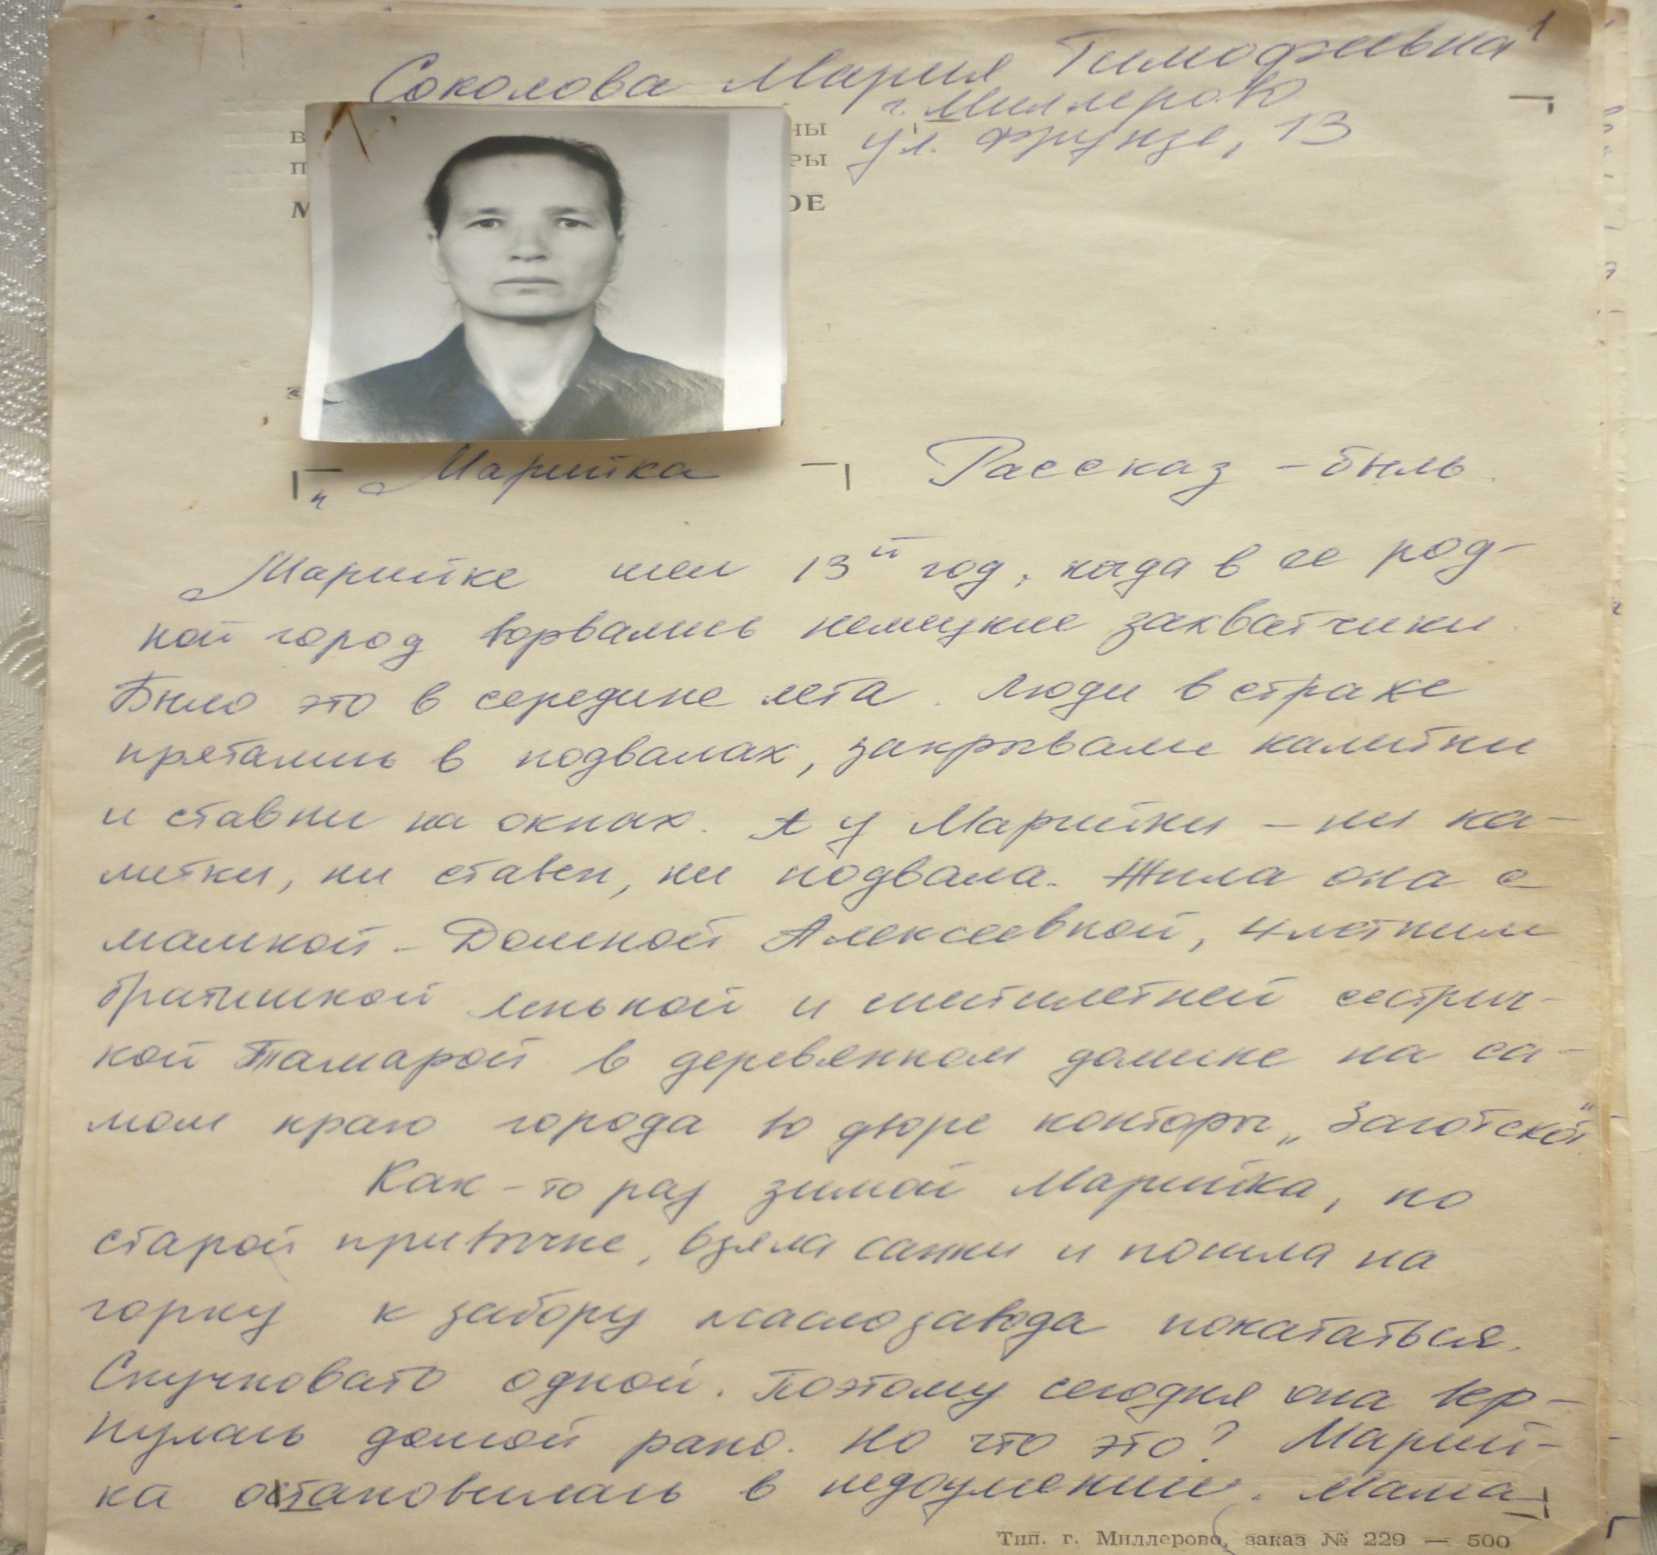 Соколова Мария Тимофеевна 1
г. Миллерово
ул. Фрунзе, 13
НЫ
РЫ
М ОЕ
„Марийка Рассказ – быль.
Марийке шел 13й год, когда в ее род-
ной город ворвались немецкие захватчики.
Было это в середине лета. Люди в страхе
прятались в подвалах, закрывали калитки
и ставни на окнах. А у Марийки – ни ка-
литки, ни ставен, ни подвала. Жила она с
мамкой – Домной Алексеевной, 4летним
братишкой Ленькой и шестилетней сестрич-
кой Тамарой в деревянном домике на са-
мом краю города во дворе конторы „Заготскот"
Как-то раз зимой Марийка, по
старой привычке, взяла санки и пошла на
горку к забору маслозавода покататься.
Скучновато одной. Поэтому сегодня она вер-
нулась домой рано. Но что это? Марий-
ка остановилась в недоумении. Мама
Тип. г. Миллерово, заказ № 229 — 500